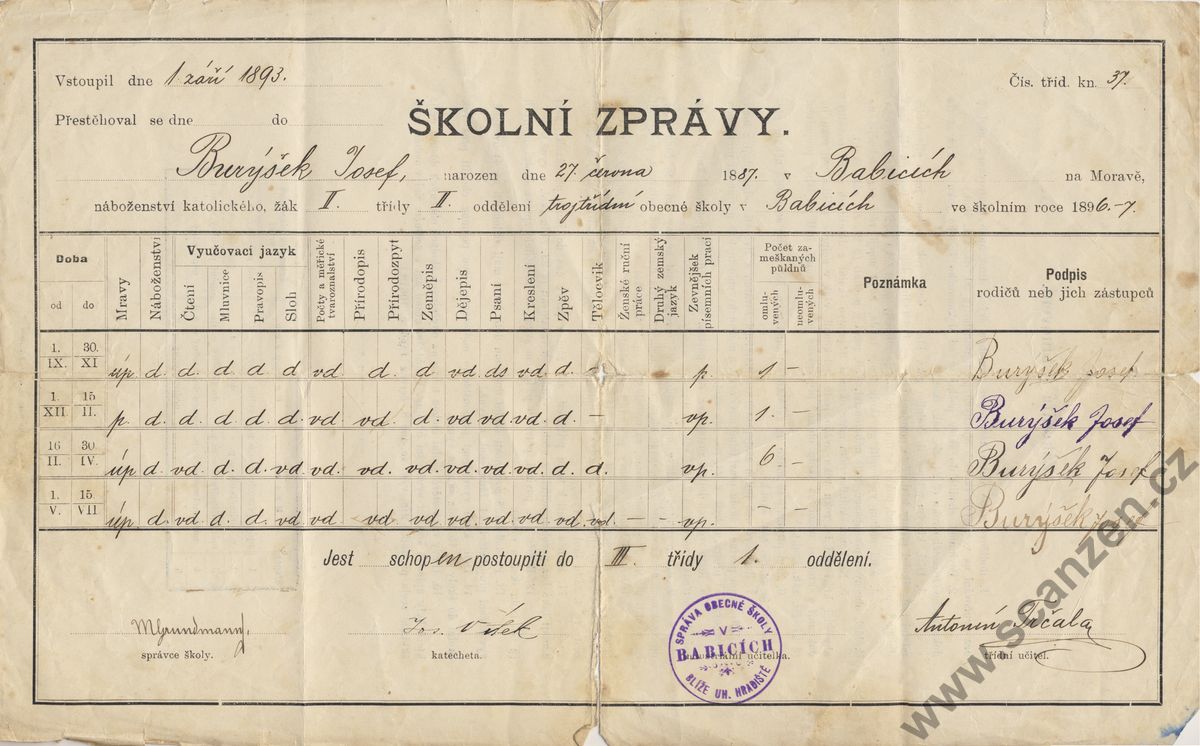 Vstoupil dne 1. září 1893.
Čís. tříd. kn. 37.
Přestěhoval se dne do
ŠKOLNÍ ZPRÁVY.
Burýšek Josef, narozen dne 27. června 1887. v Babicích na Moravě,
náboženství katolického, žák II. třídy II. oddělení trojtřídní obecné školy v Babicích ve školním roce 1896.-7
Doba
od do
Mravy
Náboženství
Vyučovací jazyk
Čtení
Mluvnice
Pravopis
Sloh
Počty a měřické tvaroznalství
Přírodopis
Přírodozpyt
Zeměpis
Dějepis
Psaní
Kreslení
Zpěv
Tělocvik
Ženské ruční práce
Druhý zemský jazyk
Zevnějšek písemních prací
Počet zameškaných půldnů
omluvených
neomluvených
Poznámka
Podpis
rodičů neb jich zástupců
1. IX. 30. XI úp. d. d. d. d d vd d. d vd. ds vd. d. – p. 1 – Burýšek Josef
1. XII. 15 II. p. d. d. d. d. d. vd vd. d. vd vd vd. d. – vp. 1. – Burýšek Josef
16 II. 30. IV. úp d. vd. d. d. vd vd. vd. vd. vd. vd. vd. d. d. vp. 6 – Burýšek Josef
1. V. 15. VII úp. d. vd d. d. vd vd vd vd. vd. vd vd. vd. vd. – – vp. – – Burýšek Josef
Jest schopen postoupiti do III. třídy 1. oddělení.
MGrundmann,
správce školy.
Jos. Víšek
katecheta.
SPRÁVA OBECNÉ ŠKOLY
V
BABICÍCH
BLÍŽE UH. HRADIŠTĚ
učitelka.
Antonín Trčala
třídní učitel.
www.scanzen.cz